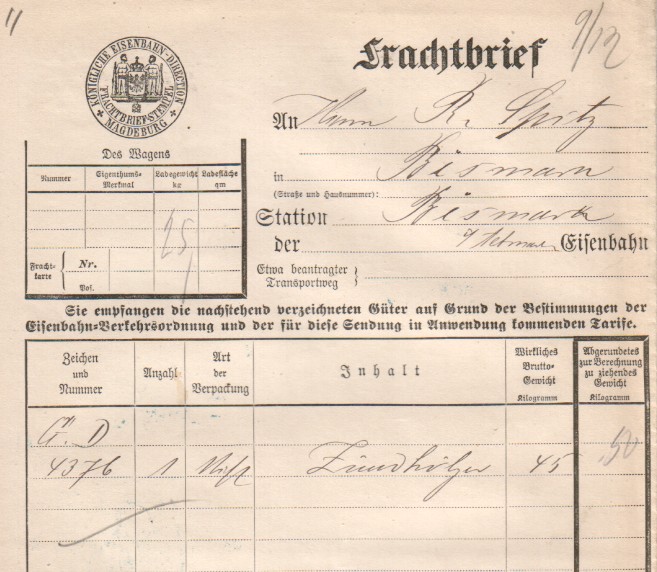 Frachtbrief
9/12
KÖNIGLICHE EISENBAHN-DIRECTION
FRACHTBRIEF-STEMPEL
MAGDEBURG
An Herrn R. Spitz
Des Wagens
Nummer Eigenthums-Merkmal Ladegewicht kg Ladefläche qm
25
Fracht-karte Nr.
Pos.
in Bismark
(Straße und Hausnummer):
Station Bismark
der Eisenbahn
Etwa beantragter Transportweg
Sie empfangen die nachstehend verzeichneten Güter auf Grund der Bestimmungen der
Eisenbahn-Verkehrsordnung und der für diese Sendung in Anwendung kommenden Tarife.
Zeichen und Nummer Anzahl Art der Verpackung Inhalt Wirkliches Brutto-Gewicht Kilogramm Abgerundetes zur Berechnung zu ziehendes Gewicht Kilogramm
G. D
4376 1 Kist Zündhölzer 45 50